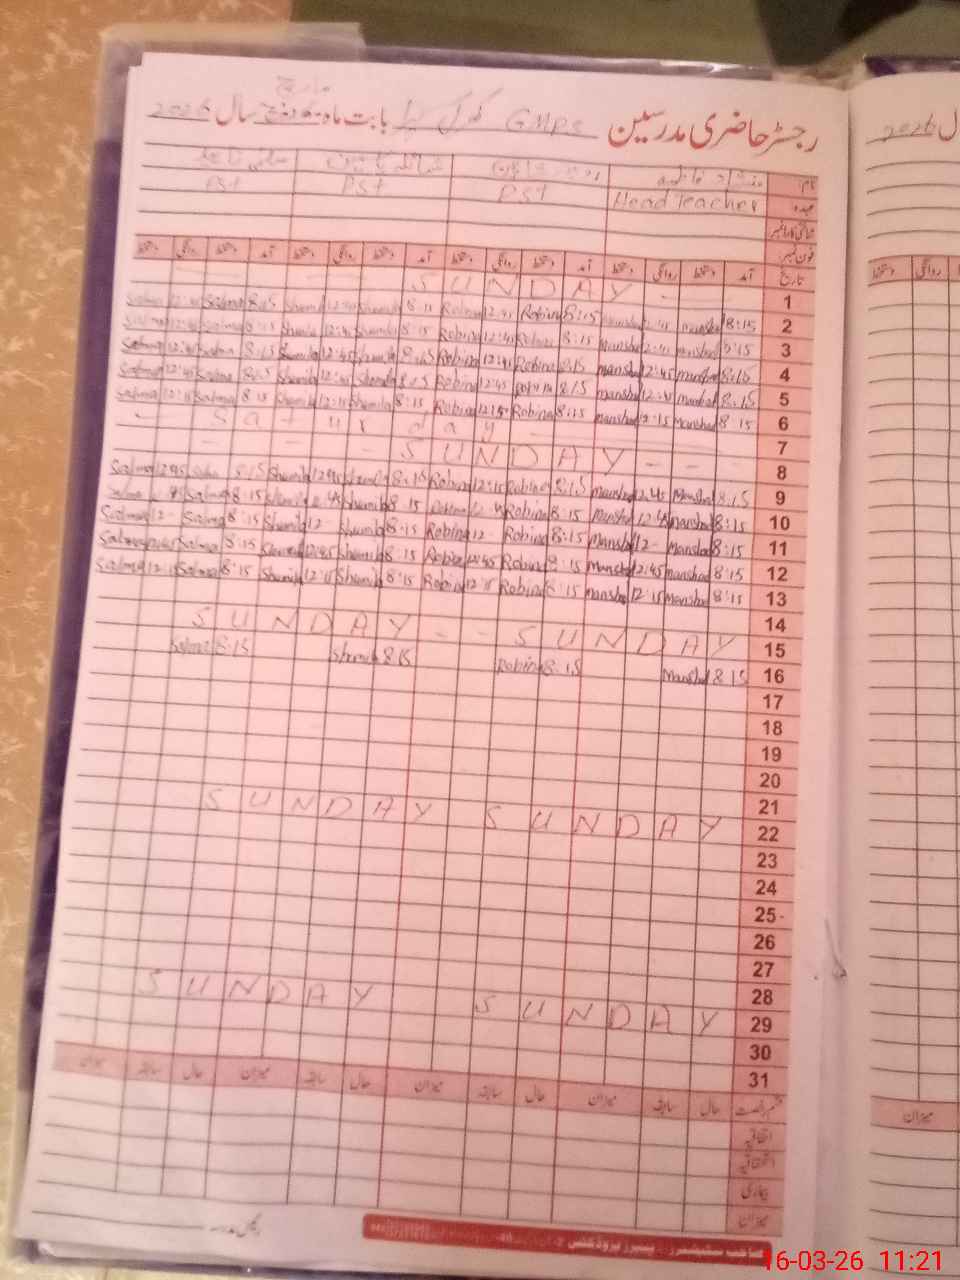 رجسٹر حاضری مدرسین GMPS بابت ماہ مارچ سال 2026
نام:
عہدہ: Head Teacher PST PST PST
شناختی کارڈ نمبر
فون نمبر:
تاریخ آمد دستخط روانگی دستخط آمد دستخط روانگی دستخط آمد دستخط روانگی دستخط آمد دستخط روانگی دستخط
1 SUNDAY
2 8:15 Manshad 12:45 Manshad 8:15 Robina 12:45 Robina 8:15 Shamila 12:45 Shamila 8:15 Salma 12:45 Salma
3 8:15 Manshad 12:45 Manshad 8:15 Robina 12:45 Robina 8:15 Shamila 12:45 Shamila 8:15 Salma 12:45 Salma
4 8:15 Manshad 12:45 Manshad 8:15 Robina 12:45 Robina 8:15 Shamila 12:45 Shamila 8:15 Salma 12:45 Salma
5 8:15 Manshad 12:45 Manshad 8:15 Robina 12:45 Robina 8:15 Shamila 12:45 Shamila 8:15 Salma 12:45 Salma
6 8:15 Manshad 12:15 Manshad 8:15 Robina 12:15 Robina 8:15 Shamila 12:15 Shamila 8:15 Salma 12:15 Salma
7 Saturday
8 SUNDAY
9 8:15 Manshad 12:45 Manshad 8:15 Robina 12:15 Robina 8:15 Shamila 12:45 Shamila 8:15 Salma 12:45 Salma
10 8:15 Manshad 12:45 Manshad 8:15 Robina Robina 8:15 Shamila 12:45 Shamila 8:15 Salma Salma
11 8:15 Manshad 12- Manshad 8:15 Robina 12- Robina 8:15 Shamila 12- Shamila 8:15 Salma 12- Salma
12 8:15 Manshad 12:45 Manshad 8:15 Robina 12:45 Robina 8:15 Shamila 12:45 Shamila 8:15 Salma 12:45 Salma
13 8:15 Manshad 12:15 Manshad 8:15 Robina 12:15 Robina 8:15 Shamila 12:15 Shamila 8:15 Salma 12:15 Salma
14
15 SUNDAY -- SUNDAY
16 8:15 Manshad 8:15 Robina 8:15 Shamila 8:15 Salma
17
18
19
20
21
22 SUNDAY SUNDAY
23
24
25
26
27
28
29 SUNDAY SUNDAY
30
31
قسم رخصت حال سابقہ میزان حال سابقہ میزان حال سابقہ میزان حال سابقہ میزان
اتفاقیہ
استحقاقیہ
بیماری
میزان
رئیس مدرسہ
سال 2026
روانگی دستخط
میزان
16-03-26 11:21